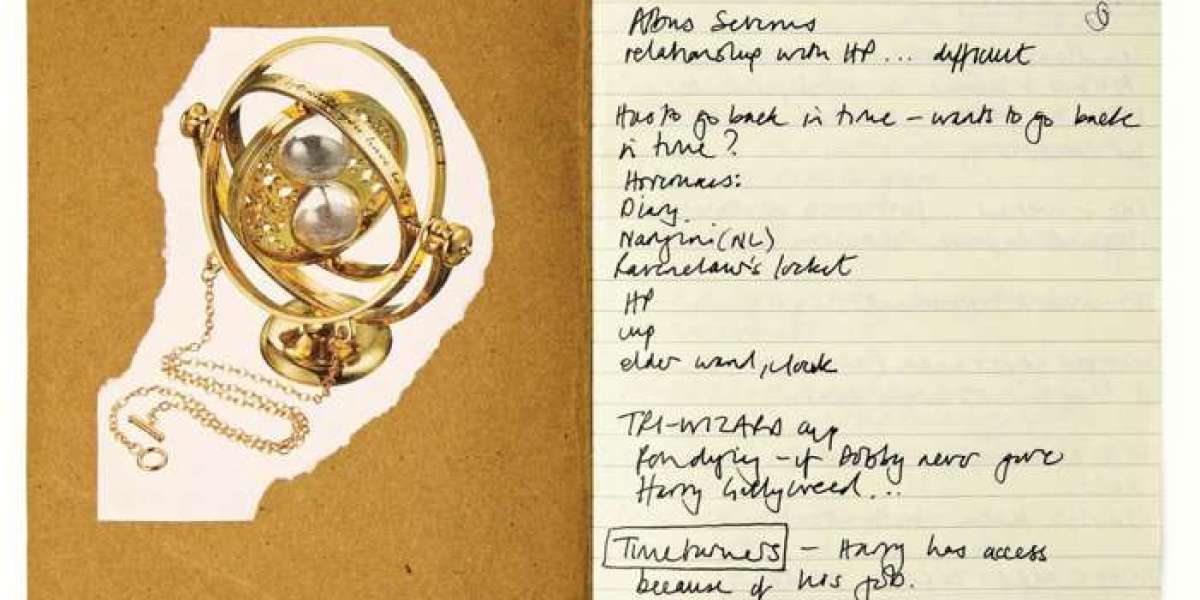 Albus Severus
relationship with HP... difficult
Has to go back in time – wants to go back
in time?
Horcruxes:
Diary.
Nargini (NL)
Ravenclaw's locket
HP
cup
elder wand, cloak
TRI-WIZARD cup
– if Dobby never gave
Harry Gillyweed...
Timeturners – Harry has access
because of his job.